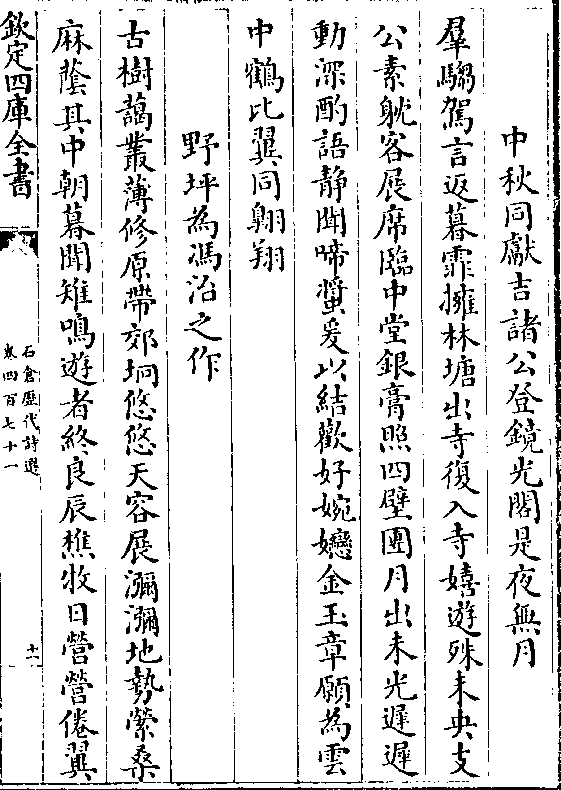 中秋同獻吉諸公登鏡光閣是夜無月
羣騶駕言返暮霏擁林塘出寺復入寺嬉遊殊未央支
公素躭客展席臨中堂銀膏照四壁團月出未光遲遲
動深酌語静聞啼螿爰以結歡好婉孌金玉章願為雲
中鶴比翼同翺翔
野坪為馮治之作
古樹藹叢薄修原帶郊坰悠悠天容展瀰瀰地勢縈桑
麻蔭其中朝暮聞雉鳴遊者終良辰樵牧日營營倦翼
欽定四庫全書
石倉歷代詩選
卷四百七十一
十一